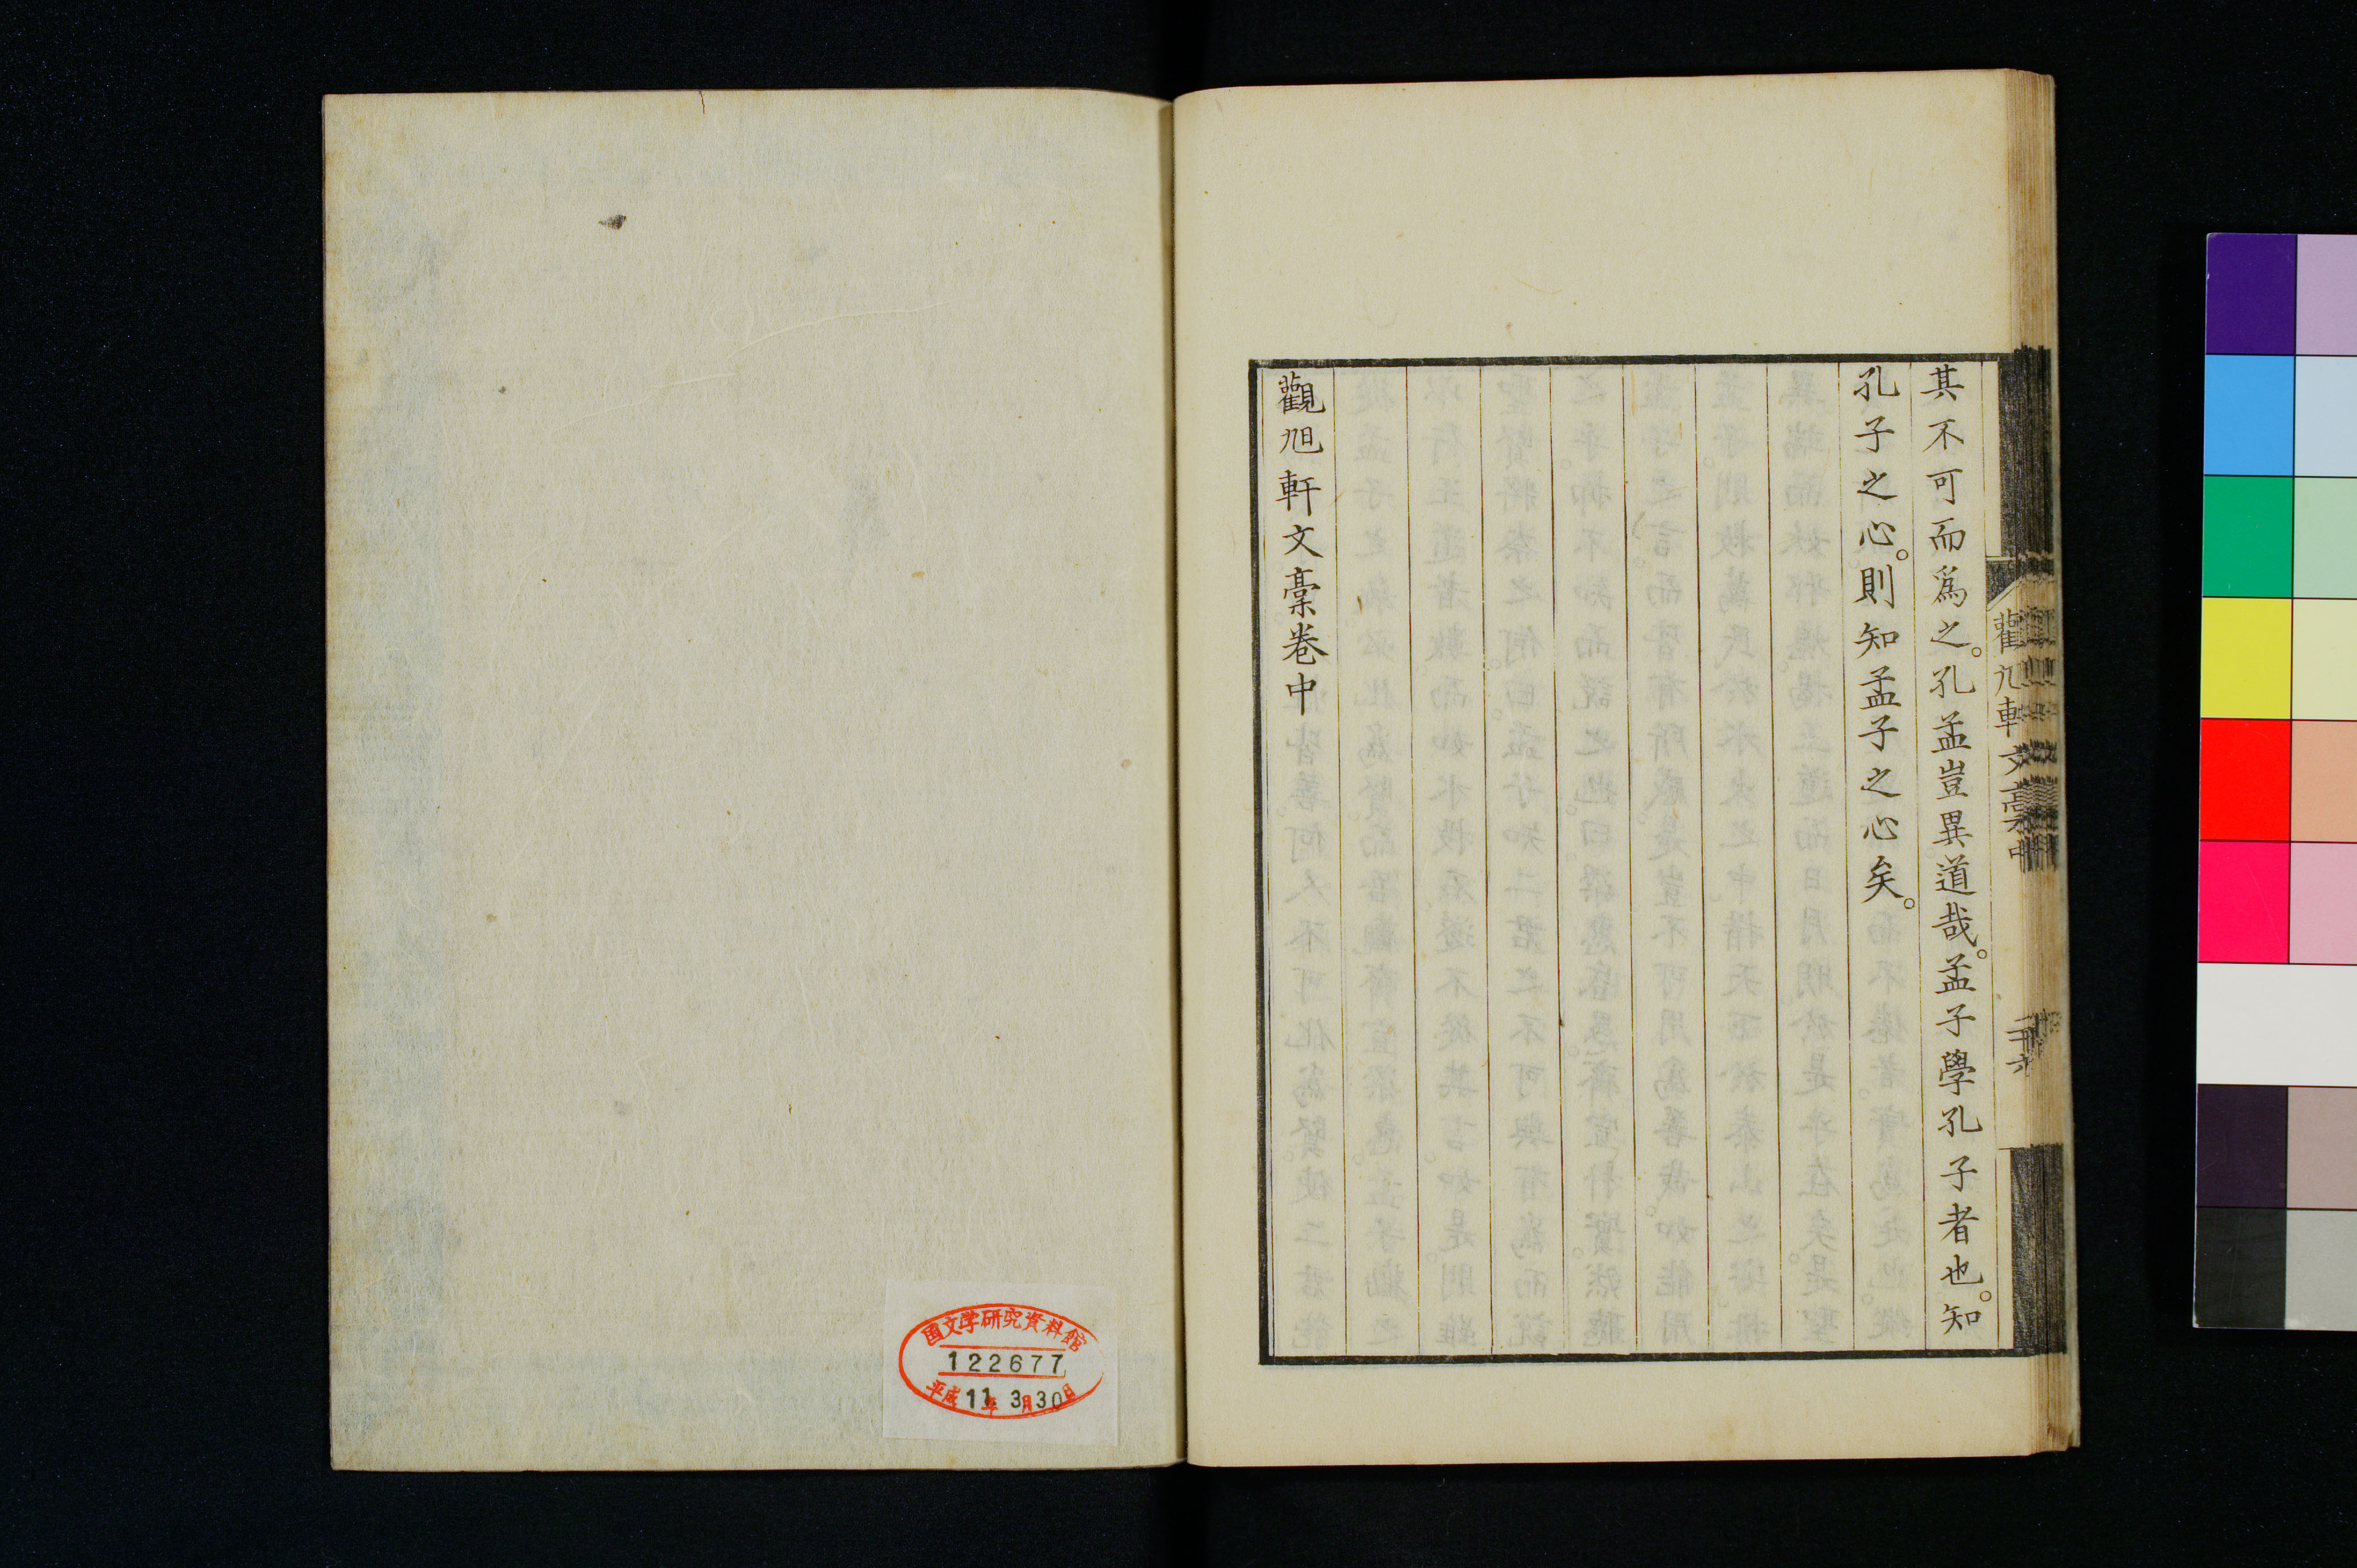 其不可而爲之。孔孟豈異道哉。孟子學孔子者也。知
孔子之心。則知孟子之心矣。
觀旭軒文稾卷中
國文学研究資料館
122677
平成11年3月30日